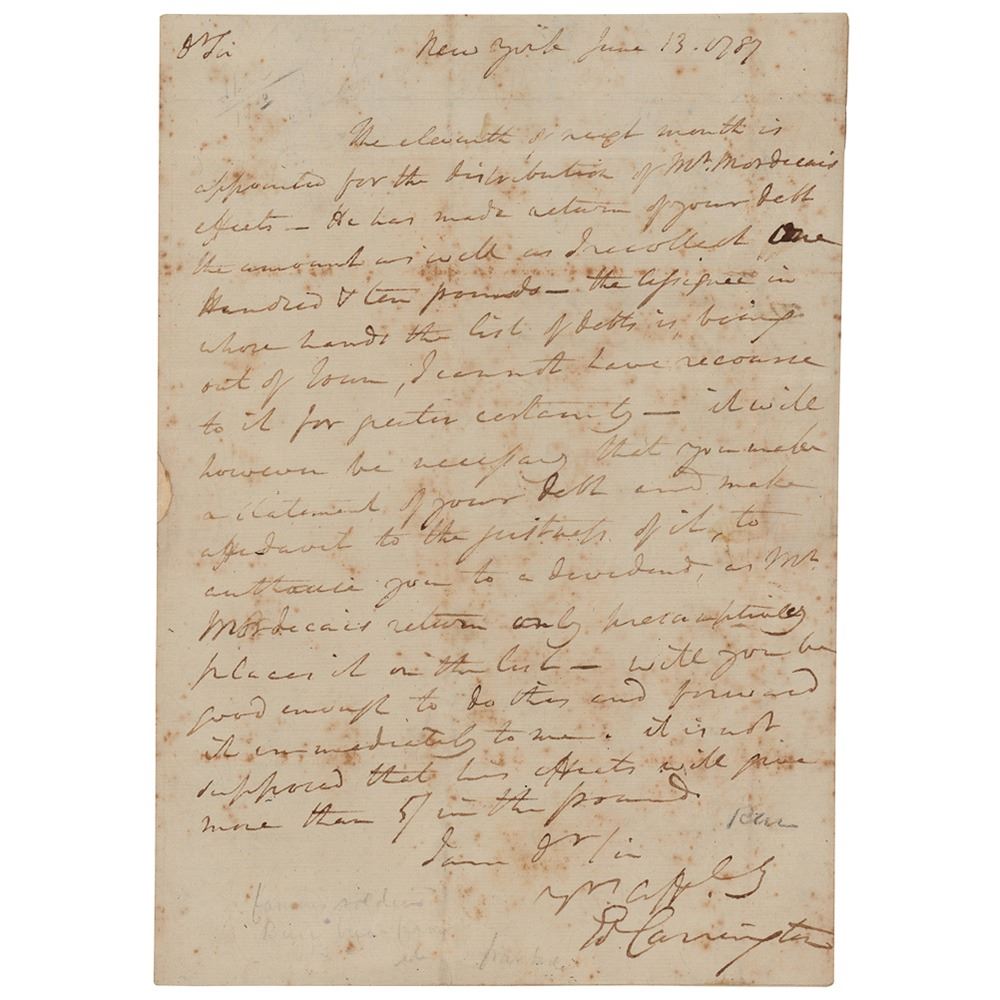 Dr Sir New York June 13. 1787
The eleventh of next month is
appointed for the distribution of Mr. Mordecais
effects — He has made return of your debt
the amount as well as I recollect One
Hundred & ten pounds — the assignee in
whose hands the list of debts is, being
out of Town, I cannot have recourse
to it for greater certainty — it will
however be necessary that you make
a statement of your debt and make
affidavit to the justness of it, to
authorise you to a dividend, as Mr.
Mordecais return only presumptively
places it on the list — will you be
good enough to do this and forward
it immediately to me. it is not
supposed that his effects will give
more than 5/ in the pound.
I am Dr Sir
Ed. Carrington